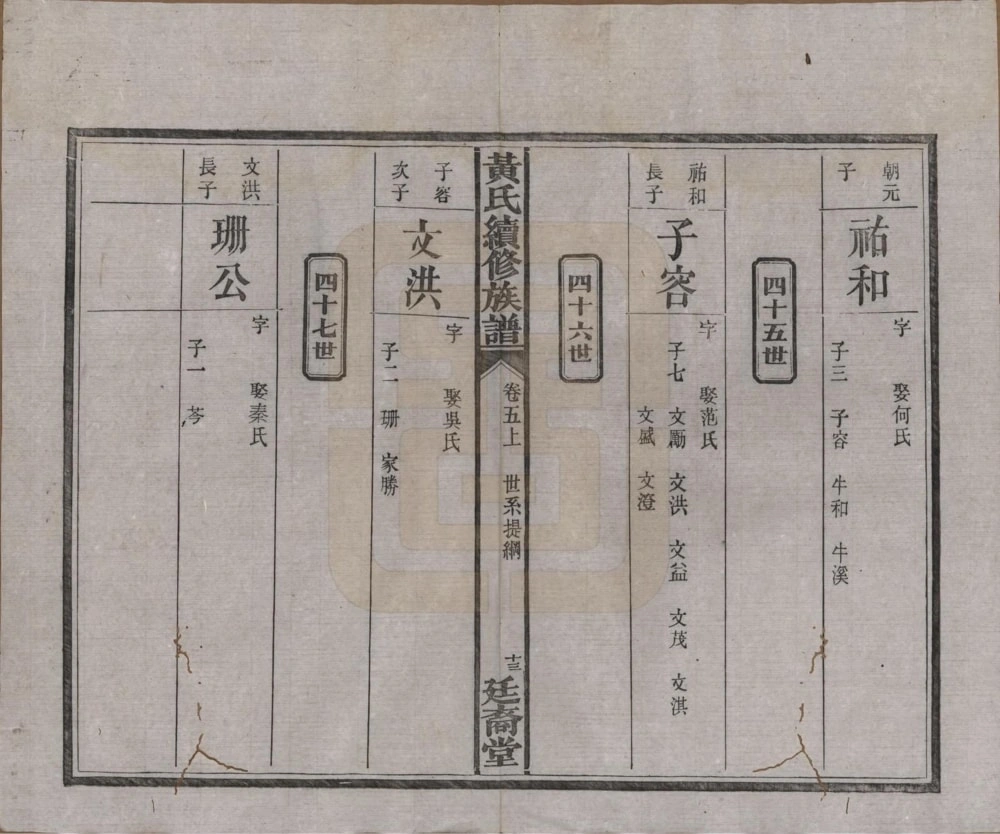 朝元
子
祐和
字
娶何氏
子三 子容 牛和 牛溪
四十五世
祐和
長子
子容
字
娶范氏
子七 文勵 文洪 文益 文茂 文淇
文盛 文澄
四十六世
黃氏續修族譜
卷五上 世系提綱
十三
廷裔堂
子容
次子
文洪
字
娶吳氏
子二 珊 家勝
四十七世
文洪
長子
珊公
字
娶秦氏
子一 芩